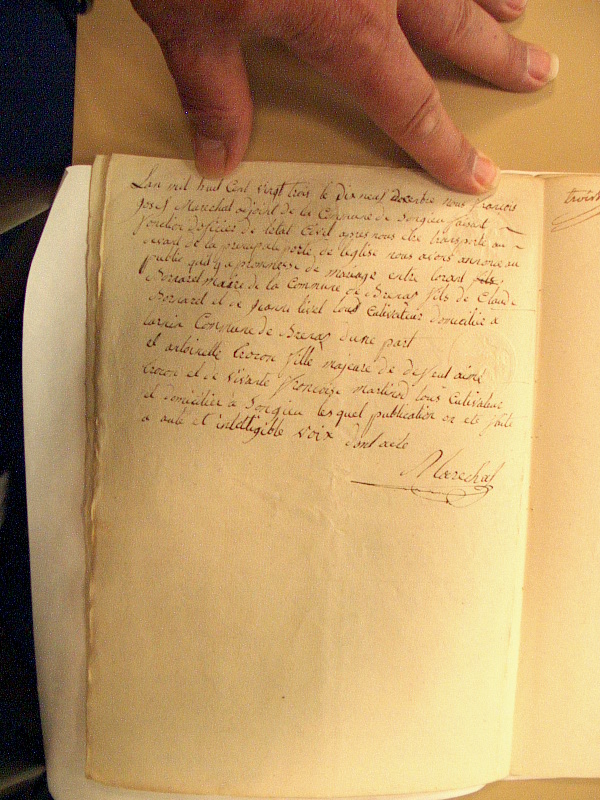 Lan mil huit Cent vingt trois le dix neuf Decentbre nous françois
josef Marechal adjoint de la Commune de Songieu faisant
fonction D'oficies de letat Civil apres nous etre transporte au
devant de la principale porte de leglise nous avons annonce au
public quil y a promnesse de mariage entre lorant fils
Bornarel maire de la Commune de Brenas fils de Claude
Bornarel et de jeanne livet tous Cultivateur domicilier a
Commune de Brenas dune part
et antoinette Crocon fille majeure de defeut aimé
Crocon et de vivante francoise martinod tous Cultivateur
et domicilier a Songieu lesquel publication on ete faite
a aute et intelligible voix dont acte
Marechal
trois